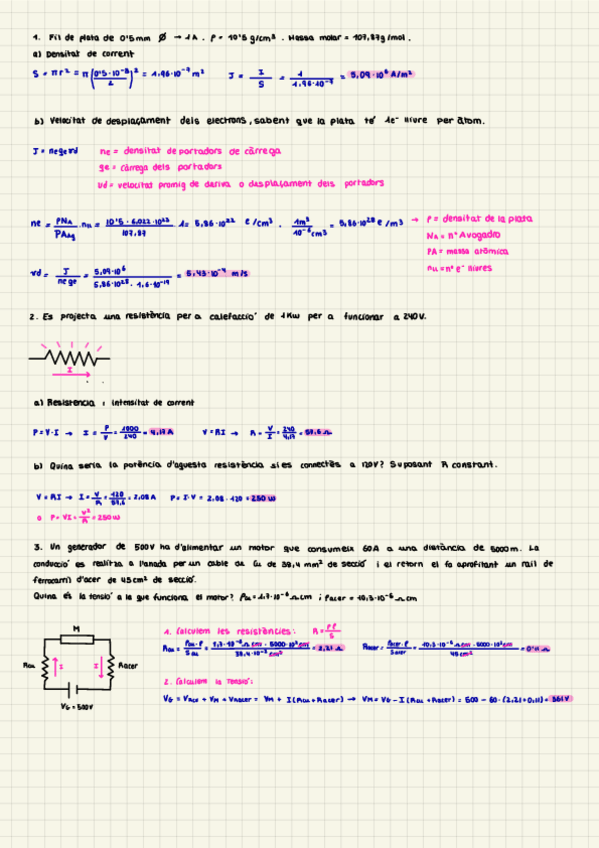 1. Fil de plata de 0'5mm Ø → 1A. ρ = 10'5 g/cm³. Massa molar = 107,87g/mol.
a) Densitat de corrent
S = πr² = π(0'5·10⁻³/2)² = 1,96·10⁻⁷ m² J = I/S = 1/1,96·10⁻⁷ = 5,09·10⁶ A/m²
b) Velocitat de desplaçament dels electrons, sabent que la plata té 1e⁻ lliure per àtom.
J = ne qe vd ne = densitat de portadors de càrrega
qe = càrrega dels portadors
vd = velocitat promig de deriva o desplaçament dels portadors
ne = ρNA/PAAg · nu = 10'5 · 6,022·10²³/107,87 · 1 = 5,86·10²² e/cm³ · 1m³/10⁻⁶cm³ = 5,86·10²⁸ e/m³ → ρ = densitat de la plata
NA = nº Avogadro
PA = massa atòmica
nu = nº e⁻ lliures
vd = J/ne qe = 5,09·10⁶/5,86·10²⁸ · 1,6·10⁻¹⁹ = 5,43·10⁻⁴ m/s
2. Es projecta una resistència per a calefacció de 1Kw per a funcionar a 240V.
I
a) Resistencia i intensitat de corrent
P = V·I → I = P/V = 1000/240 = 4,17A V = RI → R = V/I = 240/4,17 = 57,6 Ω
b) Quina seria la potència d'aquesta resistència si es connectés a 120V? Suposant R constant.
V = RI → I = V/R = 120/57,6 = 2,08A P = I·V = 2,08 · 120 = 250W
o P = VI = V²/R = 250W
3. Un generador de 500V ha d'alimentar un motor que consumeix 60A a una distància de 5000m. La
conducció es realitza a l'anada per un cable de Cu de 38,4 mm² de secció i el retorn el fa aprofitant un rail de
ferrocarril d'acer de 45cm² de secció.
Quina és la tensió a la que funciona el motor? ρcu = 1,7·10⁻⁶ Ωcm i ρacer = 10,3·10⁻⁶ Ωcm
M
Rcu I I Racer
VG = 500V
1. Calculem les resistències: R = ρl/S
Rcu = ρcu·l/Scu = 1,7·10⁻⁶ Ωcm · 5000·10²cm/38,4·10⁻²cm² = 2,21 Ω Racer = ρacer·l/Sacer = 10,3·10⁻⁶ Ωcm · 5000·10²cm/45 cm² = 0'11 Ω
2. Calculem la tensió:
VG = VRcu + VM + VRacer = VM + I(Rcu + Racer) → VM = VG - I(Rcu + Racer) = 500 - 60·(2,21+0,11) = 361V